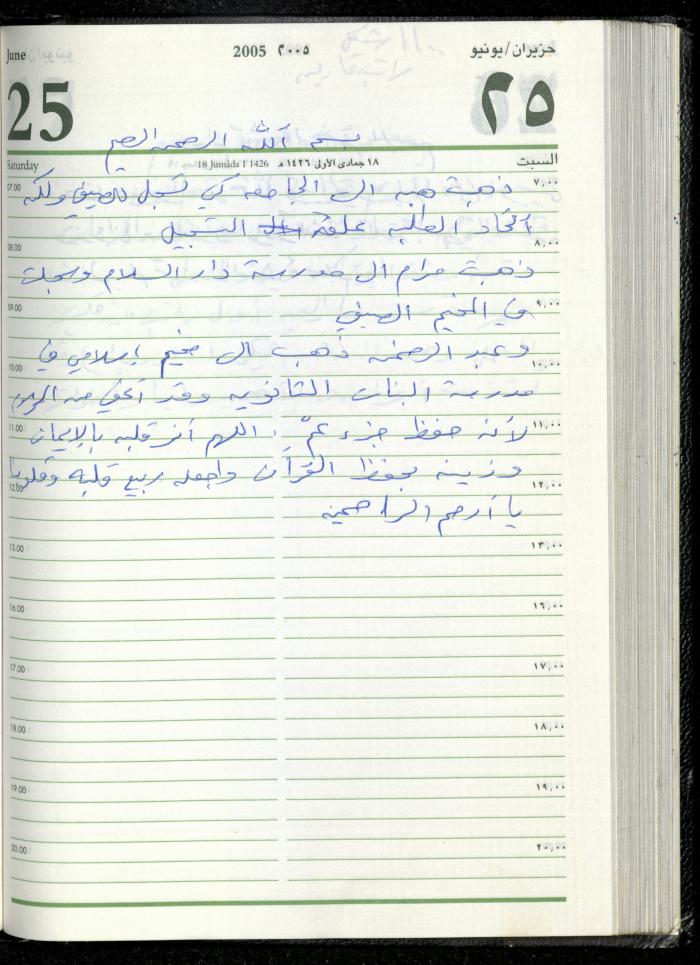 June
2005 ٢٠٠٥
حزيران/يونيو
25
٢٥
بسم الله الرحمن الرحيم
Saturday
18 Jumâda I 1426 ١٨ جمادى الأولى ١٤٢٦ هـ
السبت
07.00 ٧,٠٠
ذهبت هبه الى الجامعه كي تسجل للصيفي ولكن
اتحاد الطلبه علقه التسجيل
08.00 ٨,٠٠
ذهبت مرام الى مدرسة دار السلام وسجلت
09.00 ٩,٠٠
في المخيم الصيفي
وعبد الرحمن ذهب الى مخيم إسلامي في
10.00 ١٠,٠٠
مدرسة البنات الثانويه وقد أعفي من
11.00 ١١,٠٠
لأنه حفظ جزء عمّ. اللهم أنر قلبه بالإيمان
وزينه بحفظ القرآن واجعله ربيع قلبه وقلوبنا
12.00 ١٢,٠٠
يا أرحم الراحمين
13.00 ١٣,٠٠
16.00 ١٦,٠٠
17.00 ١٧,٠٠
18.00 ١٨,٠٠
19.00 ١٩,٠٠
20.00 ٢٠,٠٠